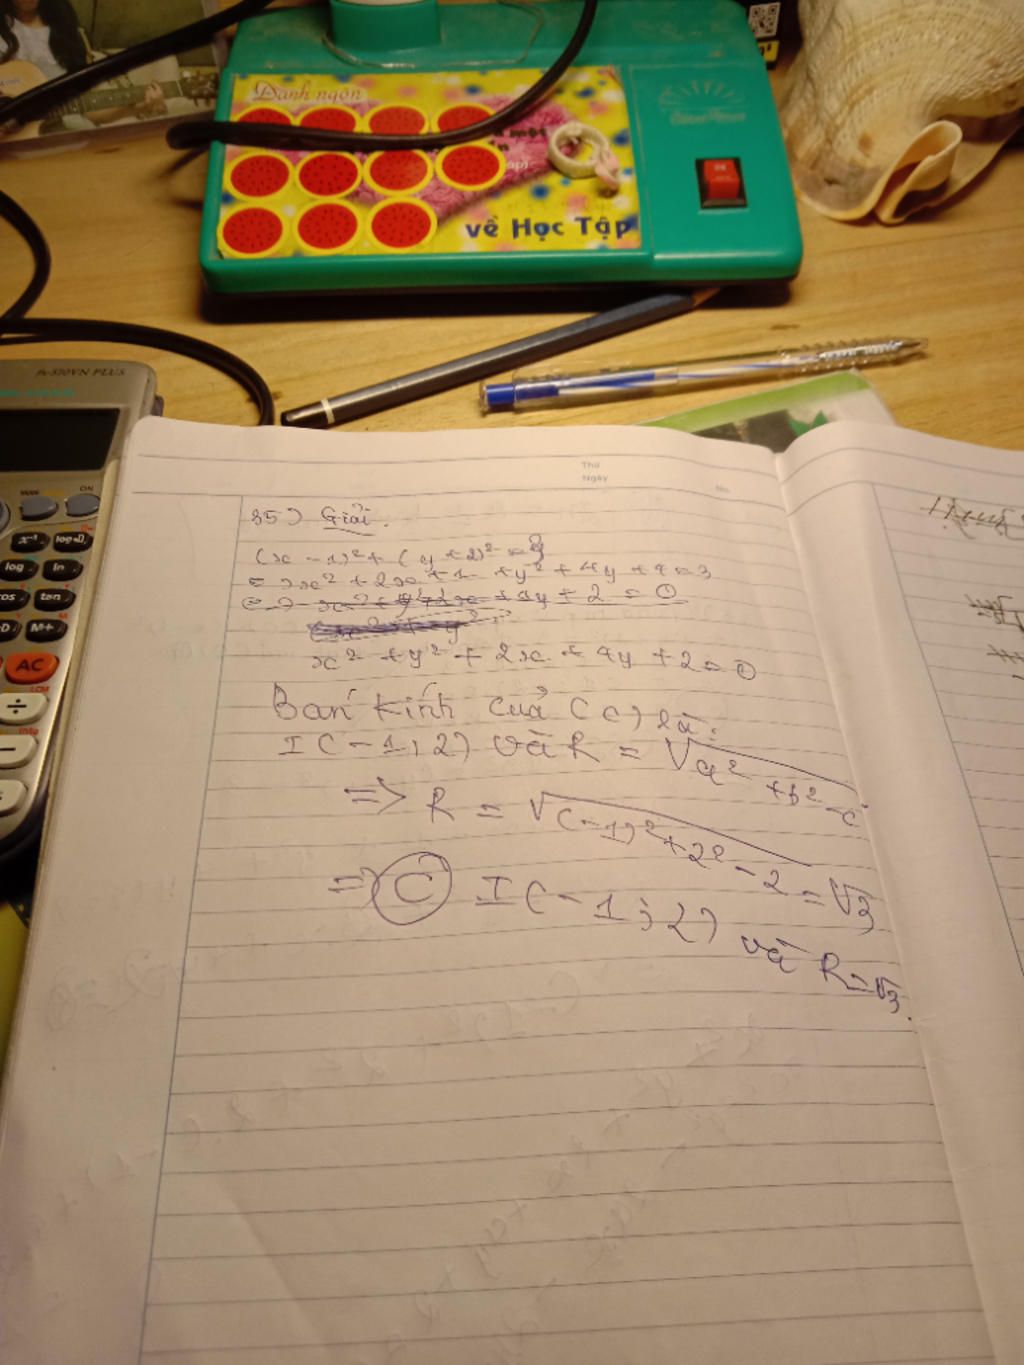 Danh ngôn
về Học Tập
fx-570VN PLUS
MODE
ON
x⁻¹
log
ln
tan
M+
AC
÷
Thứ
Ngày
No.
35) Giải.
(x - 1)² + (y + 2)² = 3
=> x² + 2x + 1 + y² + 4y + 4 = 3
x² + y² + 2x + 4y + 2 = 0
Bán kính của (C) là:
I(-1; 2) và R = √a² + b² - c
=> R = √(-1)² + 2² - 2 = √3
=> C I(-1; 2) và R = √3.